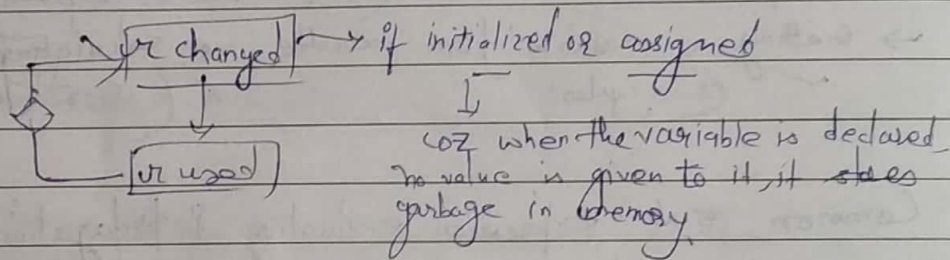 r changed → if initialized or assigned
coz when the variable is declared
r used no value is given to it, it stores
garbage in memory.